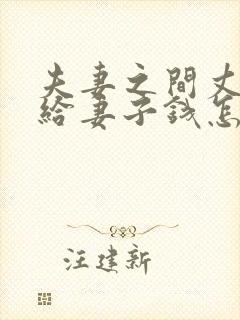 夫妻之間丈
給妻子錢怎
汪建新